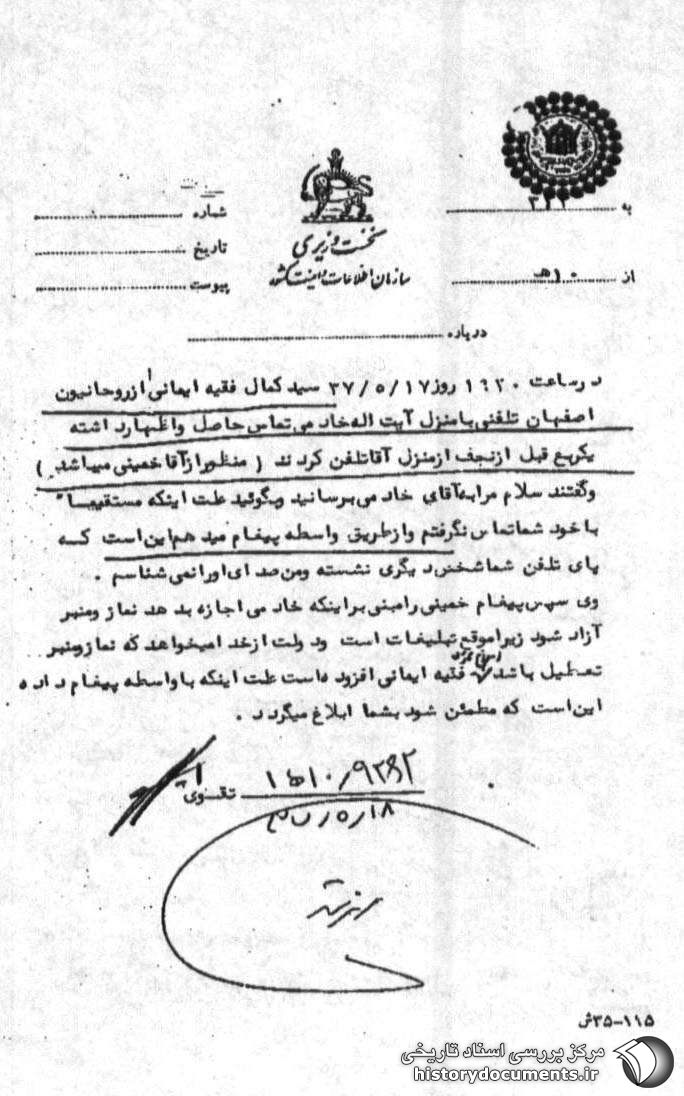 به ۳۱۲
از ۱۰ هـ
نخست وزیری
سازمان اطلاعات و امنیت کشور
شماره
تاریخ
پیوست
درباره
در ساعت ۱۹۲۰ روز ۳۷/۵/۱۷ سید کمال فقیه ایمانی از روحانیون
اصفهان تلفنی با منزل آیت اله خادمی تماس حاصل و اظهار داشته
یکربع قبل از نجف از منزل آقا تلفن کردند ( منظور از آقا خمینی میباشد )
و گفتند سلام مرا به آقای خادمی برسانید و بگوئید علت اینکه مستقیما"
با خود شما تماس نگرفتم و از طریق واسطه پیغام میدهم این است که
پای تلفن شما شخص دیگری نشسته و من صدای او را نمی شناسم .
وی سپس پیغام خمینی را مبنی بر اینکه خادمی اجازه بدهد نماز و منبر
آزاد شود زیرا موقع تبلیغات است و دولت از خدا میخواهد که نماز و منبر
تعطیل باشد فقیه ایمانی افزوده است علت اینکه با واسطه پیغام داده
این است که مطمئن شود بشما ابلاغ میگردد .
تقوی
۳۵-۱۱۵ش
مرکز بررسی اسناد تاریخی
historydocuments.ir